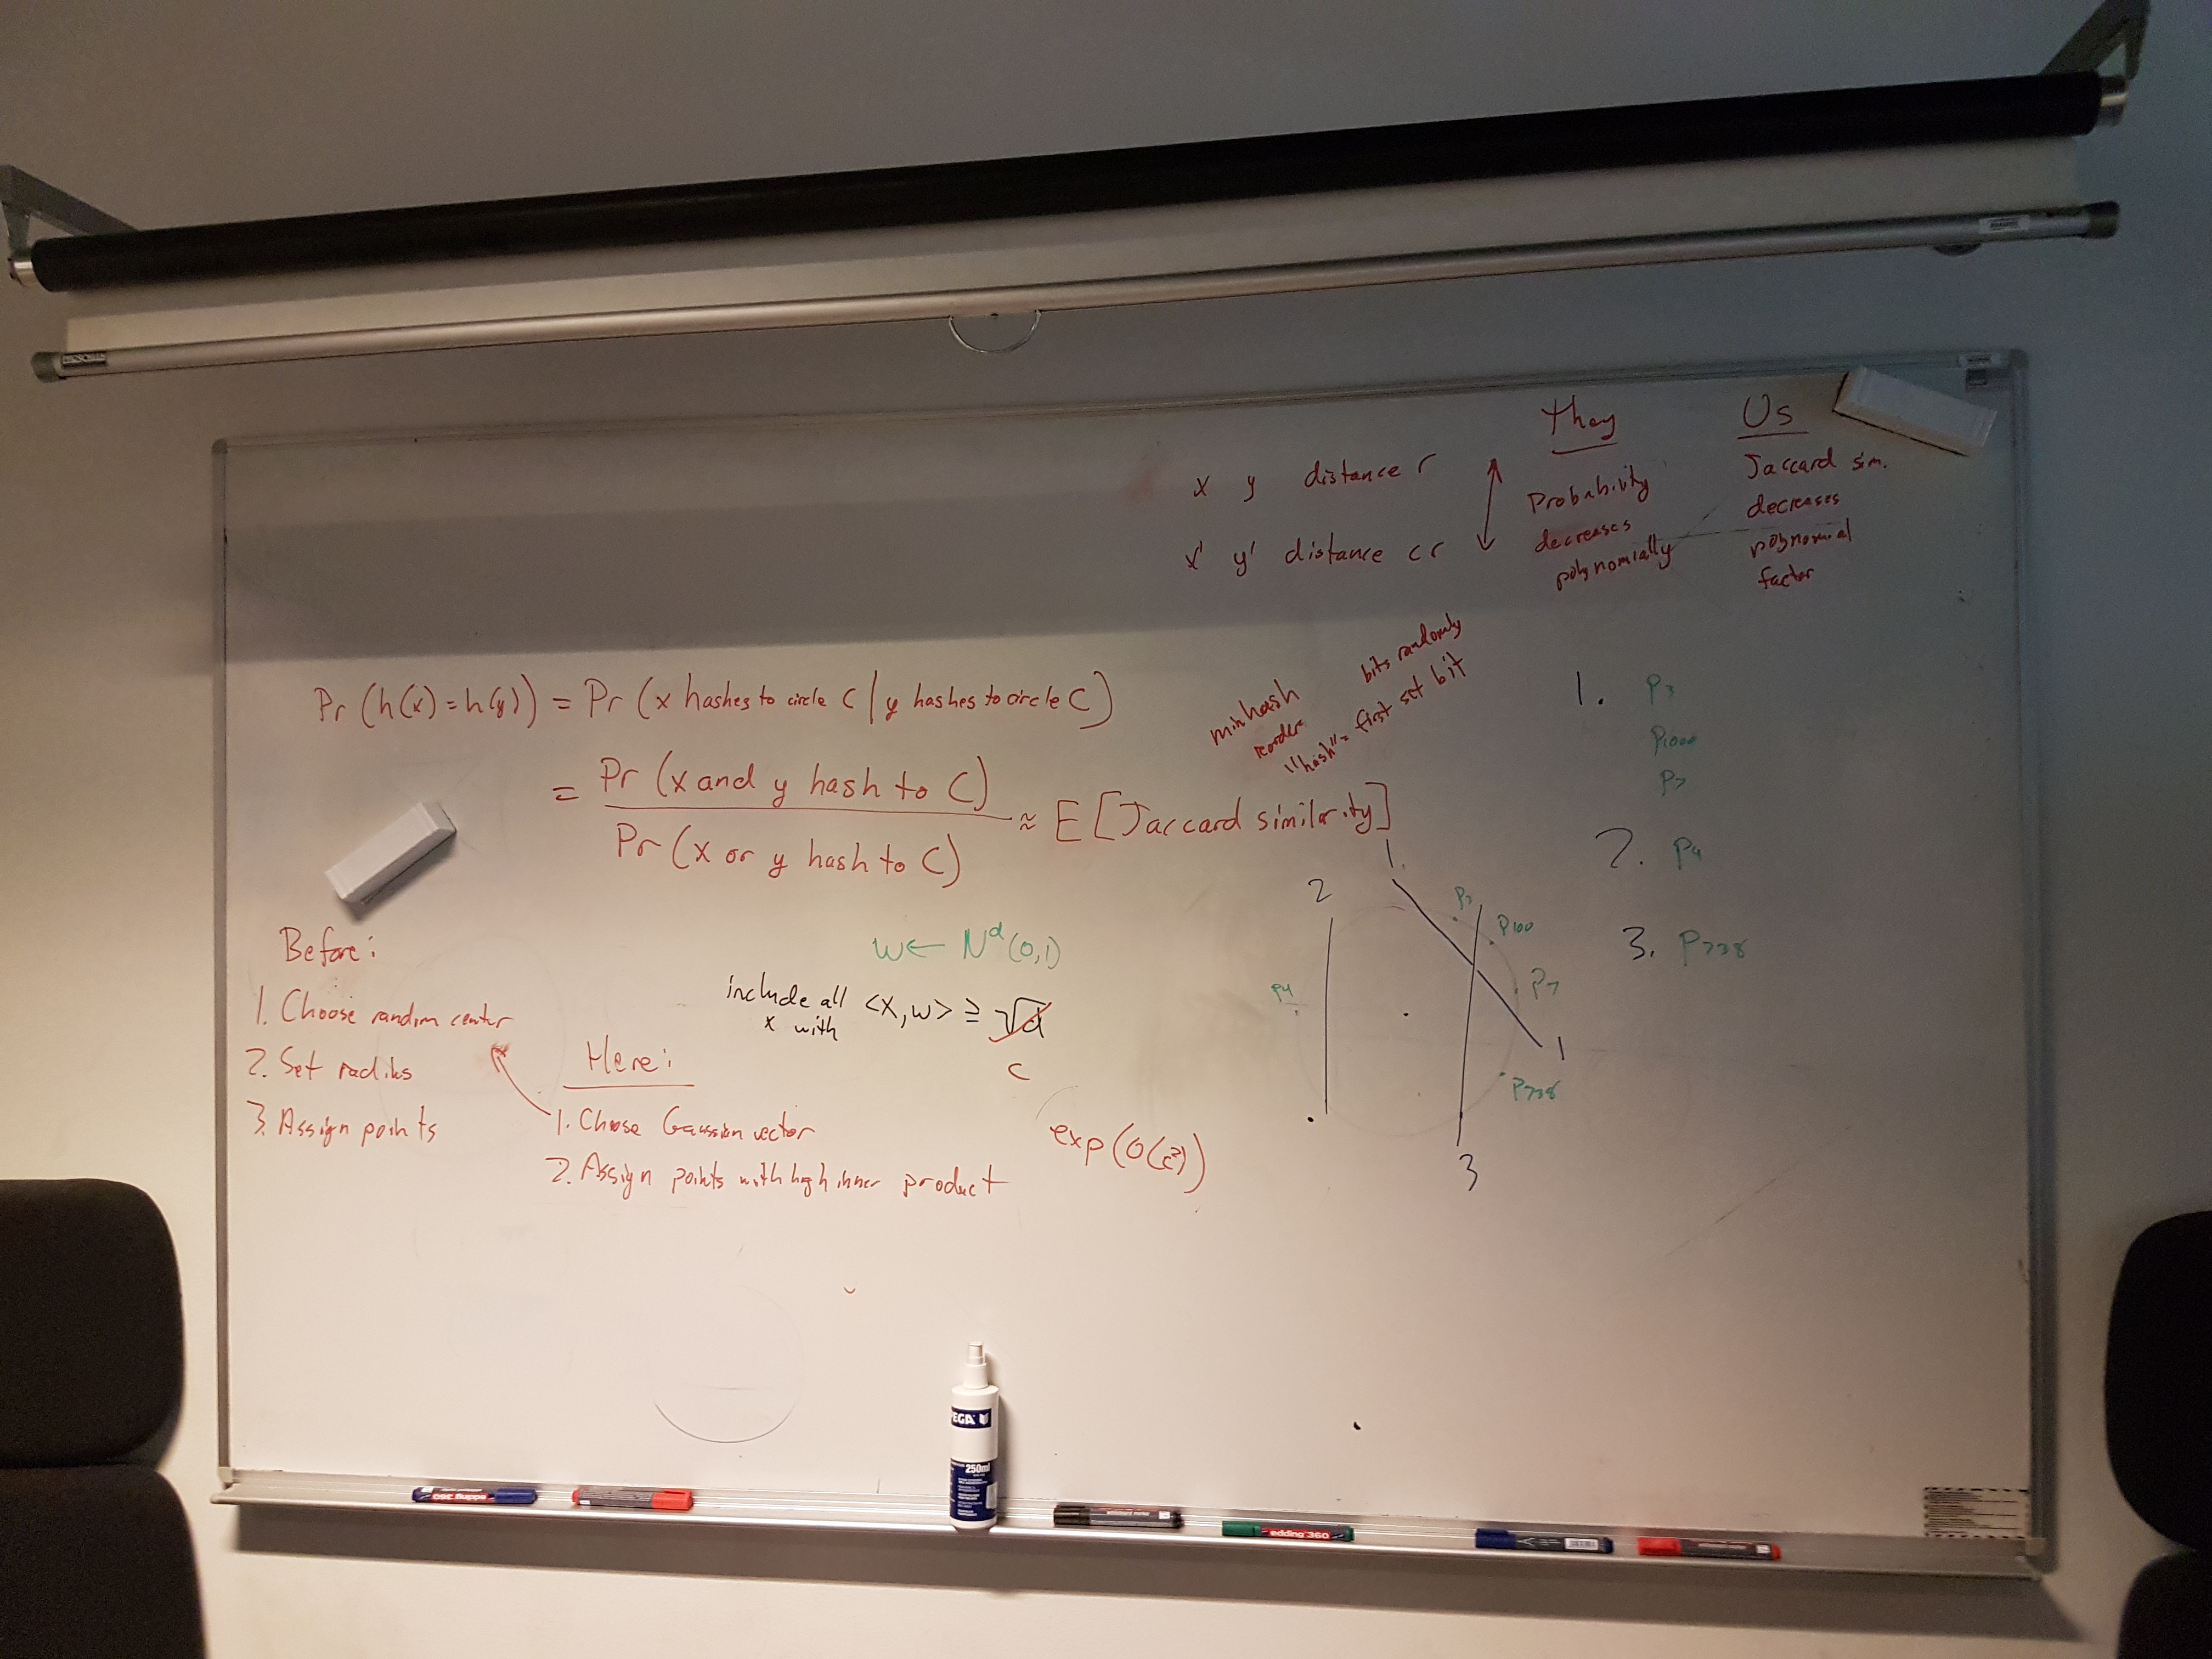 They
Us
x y distance r
Probability
decreases
polynomially
Jaccard sim.
decreases
polynomial
factor
x' y' distance cr
Pr (h(x) = h(y)) = Pr (x hashes to circle C | y hashes to circle C)
= Pr (x and y hash to C)
Pr (x or y hash to C)
≈ E [Jaccard similarity]
minhash
reorder bits randomly
"hash" = first set bit
1. P3
P1000
P7
2. P4
3. P738
Before:
1. Choose random center
2. Set radius
3. Assign points
w ← N^d (0,1)
include all
x with
<x,w> ≥ √d
c
Here:
1. Choose Gaussian vector
2. Assign points with high inner product
exp(O(c²))
2
1.
P3
P100
P4
P7
1
P738
3
EGA
250ml
edding 360
edding 360